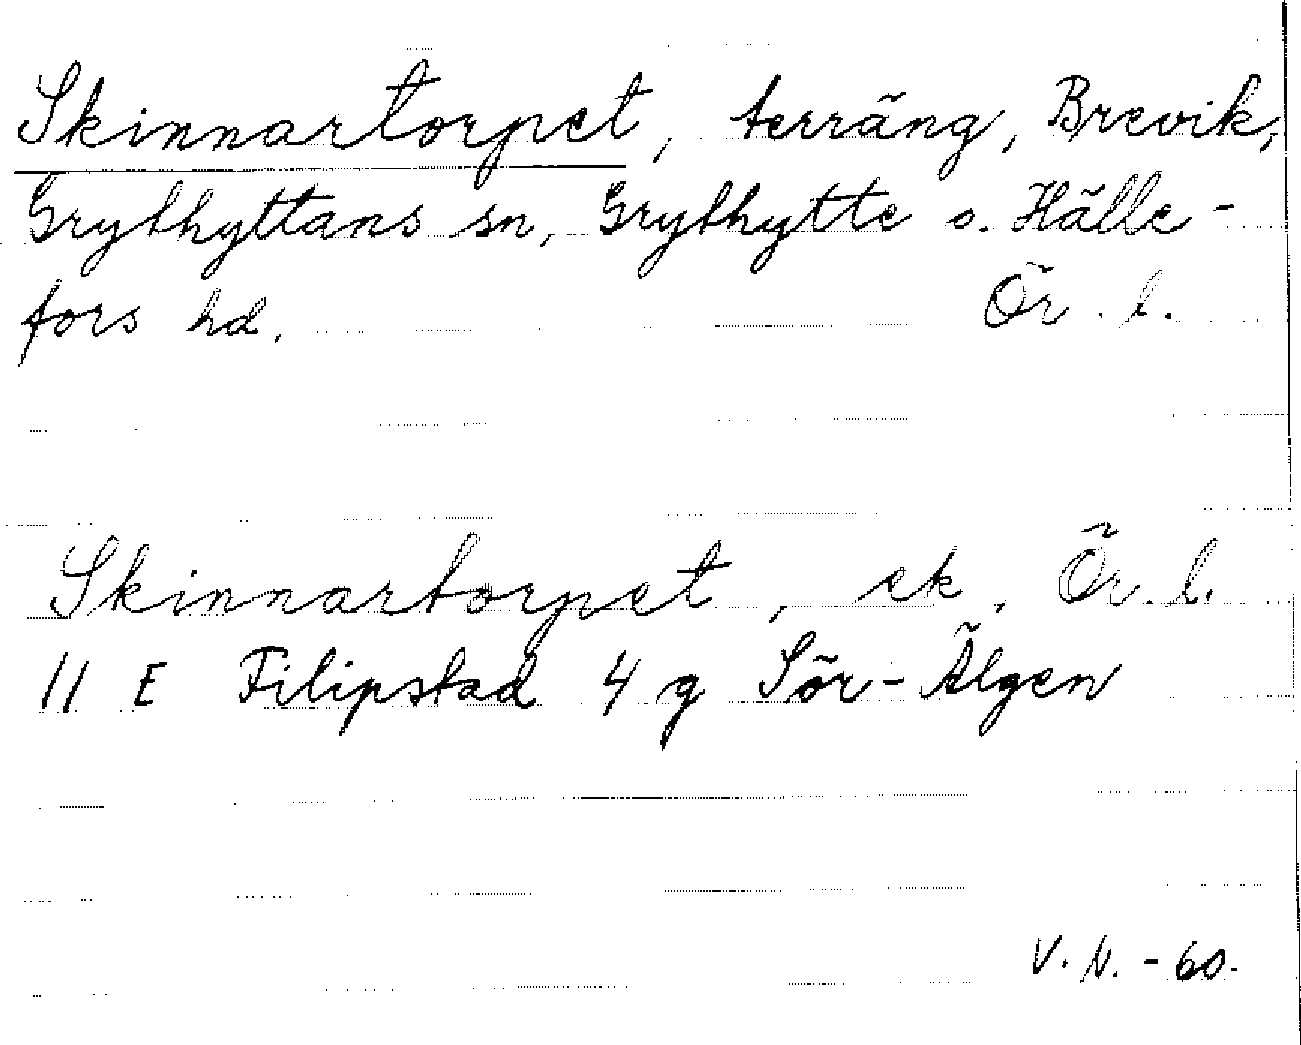 Skinnartorpet, terräng, Brevik,
Grythyttans sn, Grythytte o. Hälle-
fors hd. Ör. l.
Skinnartorpet, ek, Ör. l.
11 E Filipstad 4 g Sör-Älgen
V. N. -60.